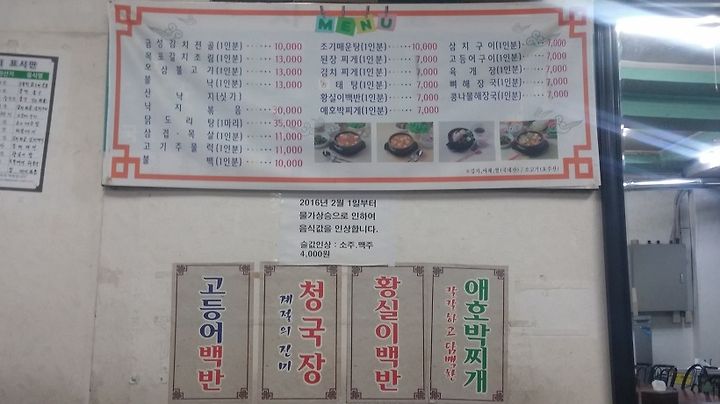 MENU
금성갈치전골(1인분) 10,000
목포갈치조림(1인분) 13,000
오삼불고기(1인분) 13,000
불낙(1인분) 13,000
산낙지(싯가)
낙지볶음 30,000
닭도리탕(1마리) 35,000
삼겹·목살(1인분) 11,000
고기주물럭(1인분) 11,000
불백(1인분) 10,000
조기매운탕(1인분) 10,000
된장찌개(1인분) 7,000
김치찌개(1인분) 7,000
동태탕(1인분) 7,000
황실이백반(1인분) 7,000
애호박찌개(1인분) 7,000
삼치구이(1인분) 7,000
고등어구이(1인분) 7,000
육개장(1인분) 7,000
뼈해장국(1인분) 7,000
콩나물해장국(1인분) 7,000
2016년 2월 1일부터
물가상승으로 인하여
음식값을 인상합니다.
술값인상 : 소주.맥주
4,000원
고등어백반
청국장
계절의 진미
황실이백반
애호박찌개
칼칼하고 담백한